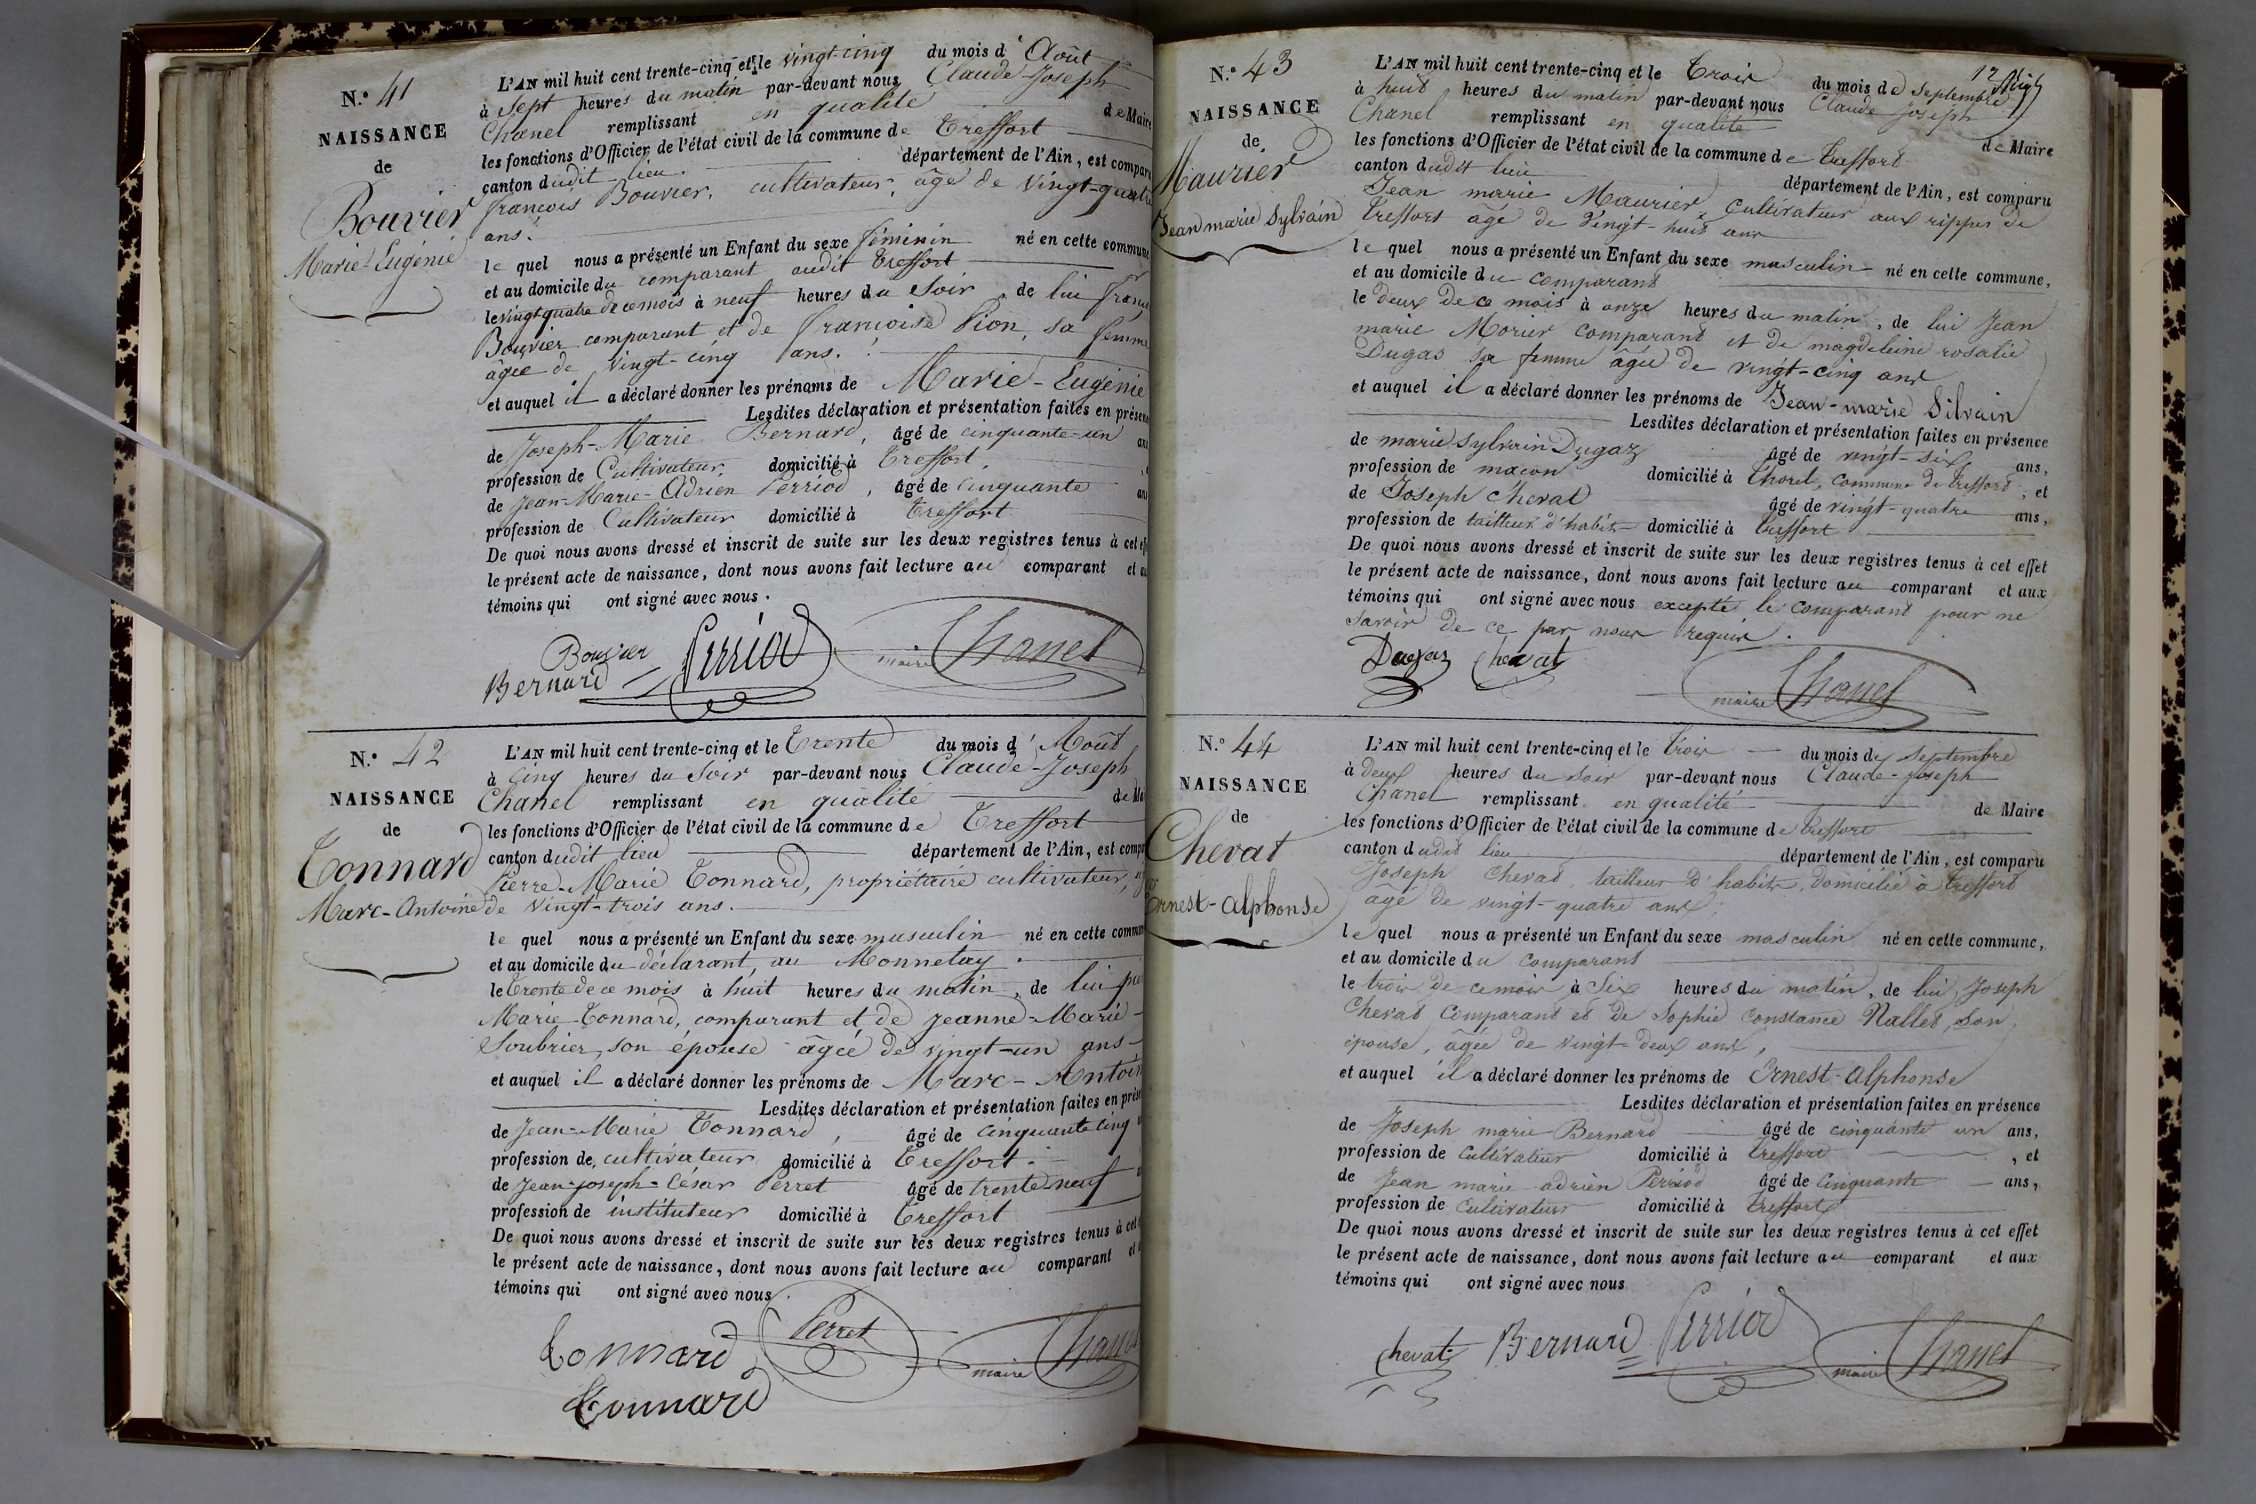 N.º 41
NAISSANCE
de
Bouvier
Marie-Eugénie
L'AN mil huit cent trente-cinq et le vingt-cinq du mois d'Août
à sept heures du matin par-devant nous Claude-Joseph
Chanel remplissant en qualité de Maire
les fonctions d'Officier de l'état civil de la commune de Treffort
canton dudit lieu département de l'Ain, est comparu
françois Bouvier, cultivateur, âgé de vingt-quatre
ans.
le quel nous a présenté un Enfant du sexe féminin né en cette commune
et au domicile du comparant audit Treffort
le vingt quatre de ce mois à neuf heures du Soir, de lui françois
Bouvier comparant et de françoise Pion, sa femme
âgée de vingt-cinq ans.
et auquel il a déclaré donner les prénoms de Marie-Eugénie
Lesdites déclaration et présentation faites en présence
de Joseph-Marie Bernard, âgé de cinquante-un ans
profession de Cultivateur, domicilié à Treffort,
de Jean-Marie-Adrien Perriod, âgé de cinquante ans
profession de Cultivateur domicilié à Treffort
De quoi nous avons dressé et inscrit de suite sur les deux registres tenus à cet effet
le présent acte de naissance, dont nous avons fait lecture au comparant et aux
témoins qui ont signé avec nous.
Bouvier Perriod maire Chanel
Bernard
N.º 42
NAISSANCE
de
Tonnard
Marc-Antoine
L'AN mil huit cent trente-cinq et le Trente du mois d'Août
à Cinq heures du Soir par-devant nous Claude-Joseph
Chanel remplissant en qualité de Maire
les fonctions d'Officier de l'état civil de la commune de Treffort
canton dudit lieu département de l'Ain, est comparu
Pierre-Marie Tonnard, propriétaire cultivateur, âgé
de vingt-trois ans.
le quel nous a présenté un Enfant du sexe masculin né en cette commune
et au domicile du déclarant, au Monnetay.
le Trente de ce mois à huit heures du matin, de lui pierre
Marie Tonnard, comparant et de Jeanne-Marie-
Soubrier, son épouse âgée de vingt-un ans-
et auquel il a déclaré donner les prénoms de Marc-Antoine
Lesdites déclaration et présentation faites en présence
de Jean-Marie Tonnard, âgé de cinquante cinq
profession de cultivateur domicilié à Treffort.
de Jean-Joseph-César Perret âgé de trente neuf
profession de instituteur domicilié à Treffort
De quoi nous avons dressé et inscrit de suite sur les deux registres tenus à cet
le présent acte de naissance, dont nous avons fait lecture au comparant et
témoins qui ont signé avec nous.
Tonnard Perret maire Chanel
Tonnard
N.º 43
NAISSANCE
de
Maurier
Jean marie Sylvain
L'AN mil huit cent trente-cinq et le Trois du mois de Septembre
à huit heures du matin par-devant nous Claude Joseph
Chanel remplissant en qualité de Maire
les fonctions d'Officier de l'état civil de la commune de treffort
canton dudit lieu département de l'Ain, est comparu
Jean marie Maurier, Cultivateur aux rippes de
treffort âgé de Vingt-huit ans
le quel nous a présenté un Enfant du sexe masculin né en cette commune,
et au domicile du comparant
le deux de ce mois à onze heures du matin, de lui Jean
marie Morier comparant et de magdeleine rosalie
Dugas sa femme âgée de vingt-cinq ans
et auquel il a déclaré donner les prénoms de Jean-marie Silvain
Lesdites déclaration et présentation faites en présence
de marie Sylvain Dugaz âgé de vingt-six ans,
profession de maçon domicilié à Thorel, commune de treffort, et
de Joseph Chevat âgé de vingt-quatre ans,
profession de tailleur d'habits domicilié à treffort
De quoi nous avons dressé et inscrit de suite sur les deux registres tenus à cet effet
le présent acte de naissance, dont nous avons fait lecture au comparant et aux
témoins qui ont signé avec nous excepté le comparant pour ne
savoir de ce par nous requis.
Dugaz Chevat maire Chanel
N.º 44
NAISSANCE
de
Chevat
Ernest-Alphonse
L'AN mil huit cent trente-cinq et le trois du mois de Septembre
à deux heures du soir par-devant nous Claude-Joseph
Chanel remplissant en qualité de Maire
les fonctions d'Officier de l'état civil de la commune de treffort
canton dudit lieu département de l'Ain, est comparu
Joseph Chevat, tailleur d'habits, domicilié à treffort
âgé de vingt-quatre ans,
le quel nous a présenté un Enfant du sexe masculin né en cette commune,
et au domicile du comparant
le trois de ce mois à six heures du matin, de lui Joseph
Chevat comparant et de Sophie Constance Nallet, son
épouse, âgée de vingt-deux ans,
et auquel il a déclaré donner les prénoms de Ernest-Alphonse
Lesdites déclaration et présentation faites en présence
de Joseph marie Bernard âgé de cinquante un ans,
profession de Cultivateur domicilié à treffort, et
de Jean marie adrien Perriod âgé de Cinquante ans,
profession de Cultivateur domicilié à treffort
De quoi nous avons dressé et inscrit de suite sur les deux registres tenus à cet effet
le présent acte de naissance, dont nous avons fait lecture au comparant et aux
témoins qui ont signé avec nous
Chevat Bernard Perriod maire Chanel